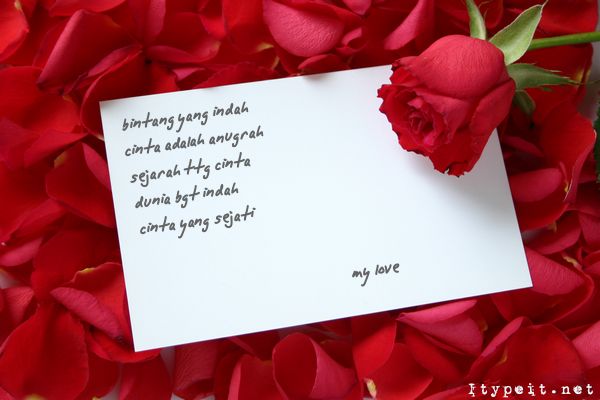 bintang yang indah
cinta adalah anugrah
sejarah ttg cinta
dunia bgt indah
cinta yang sejati
my love
Itypeit.net